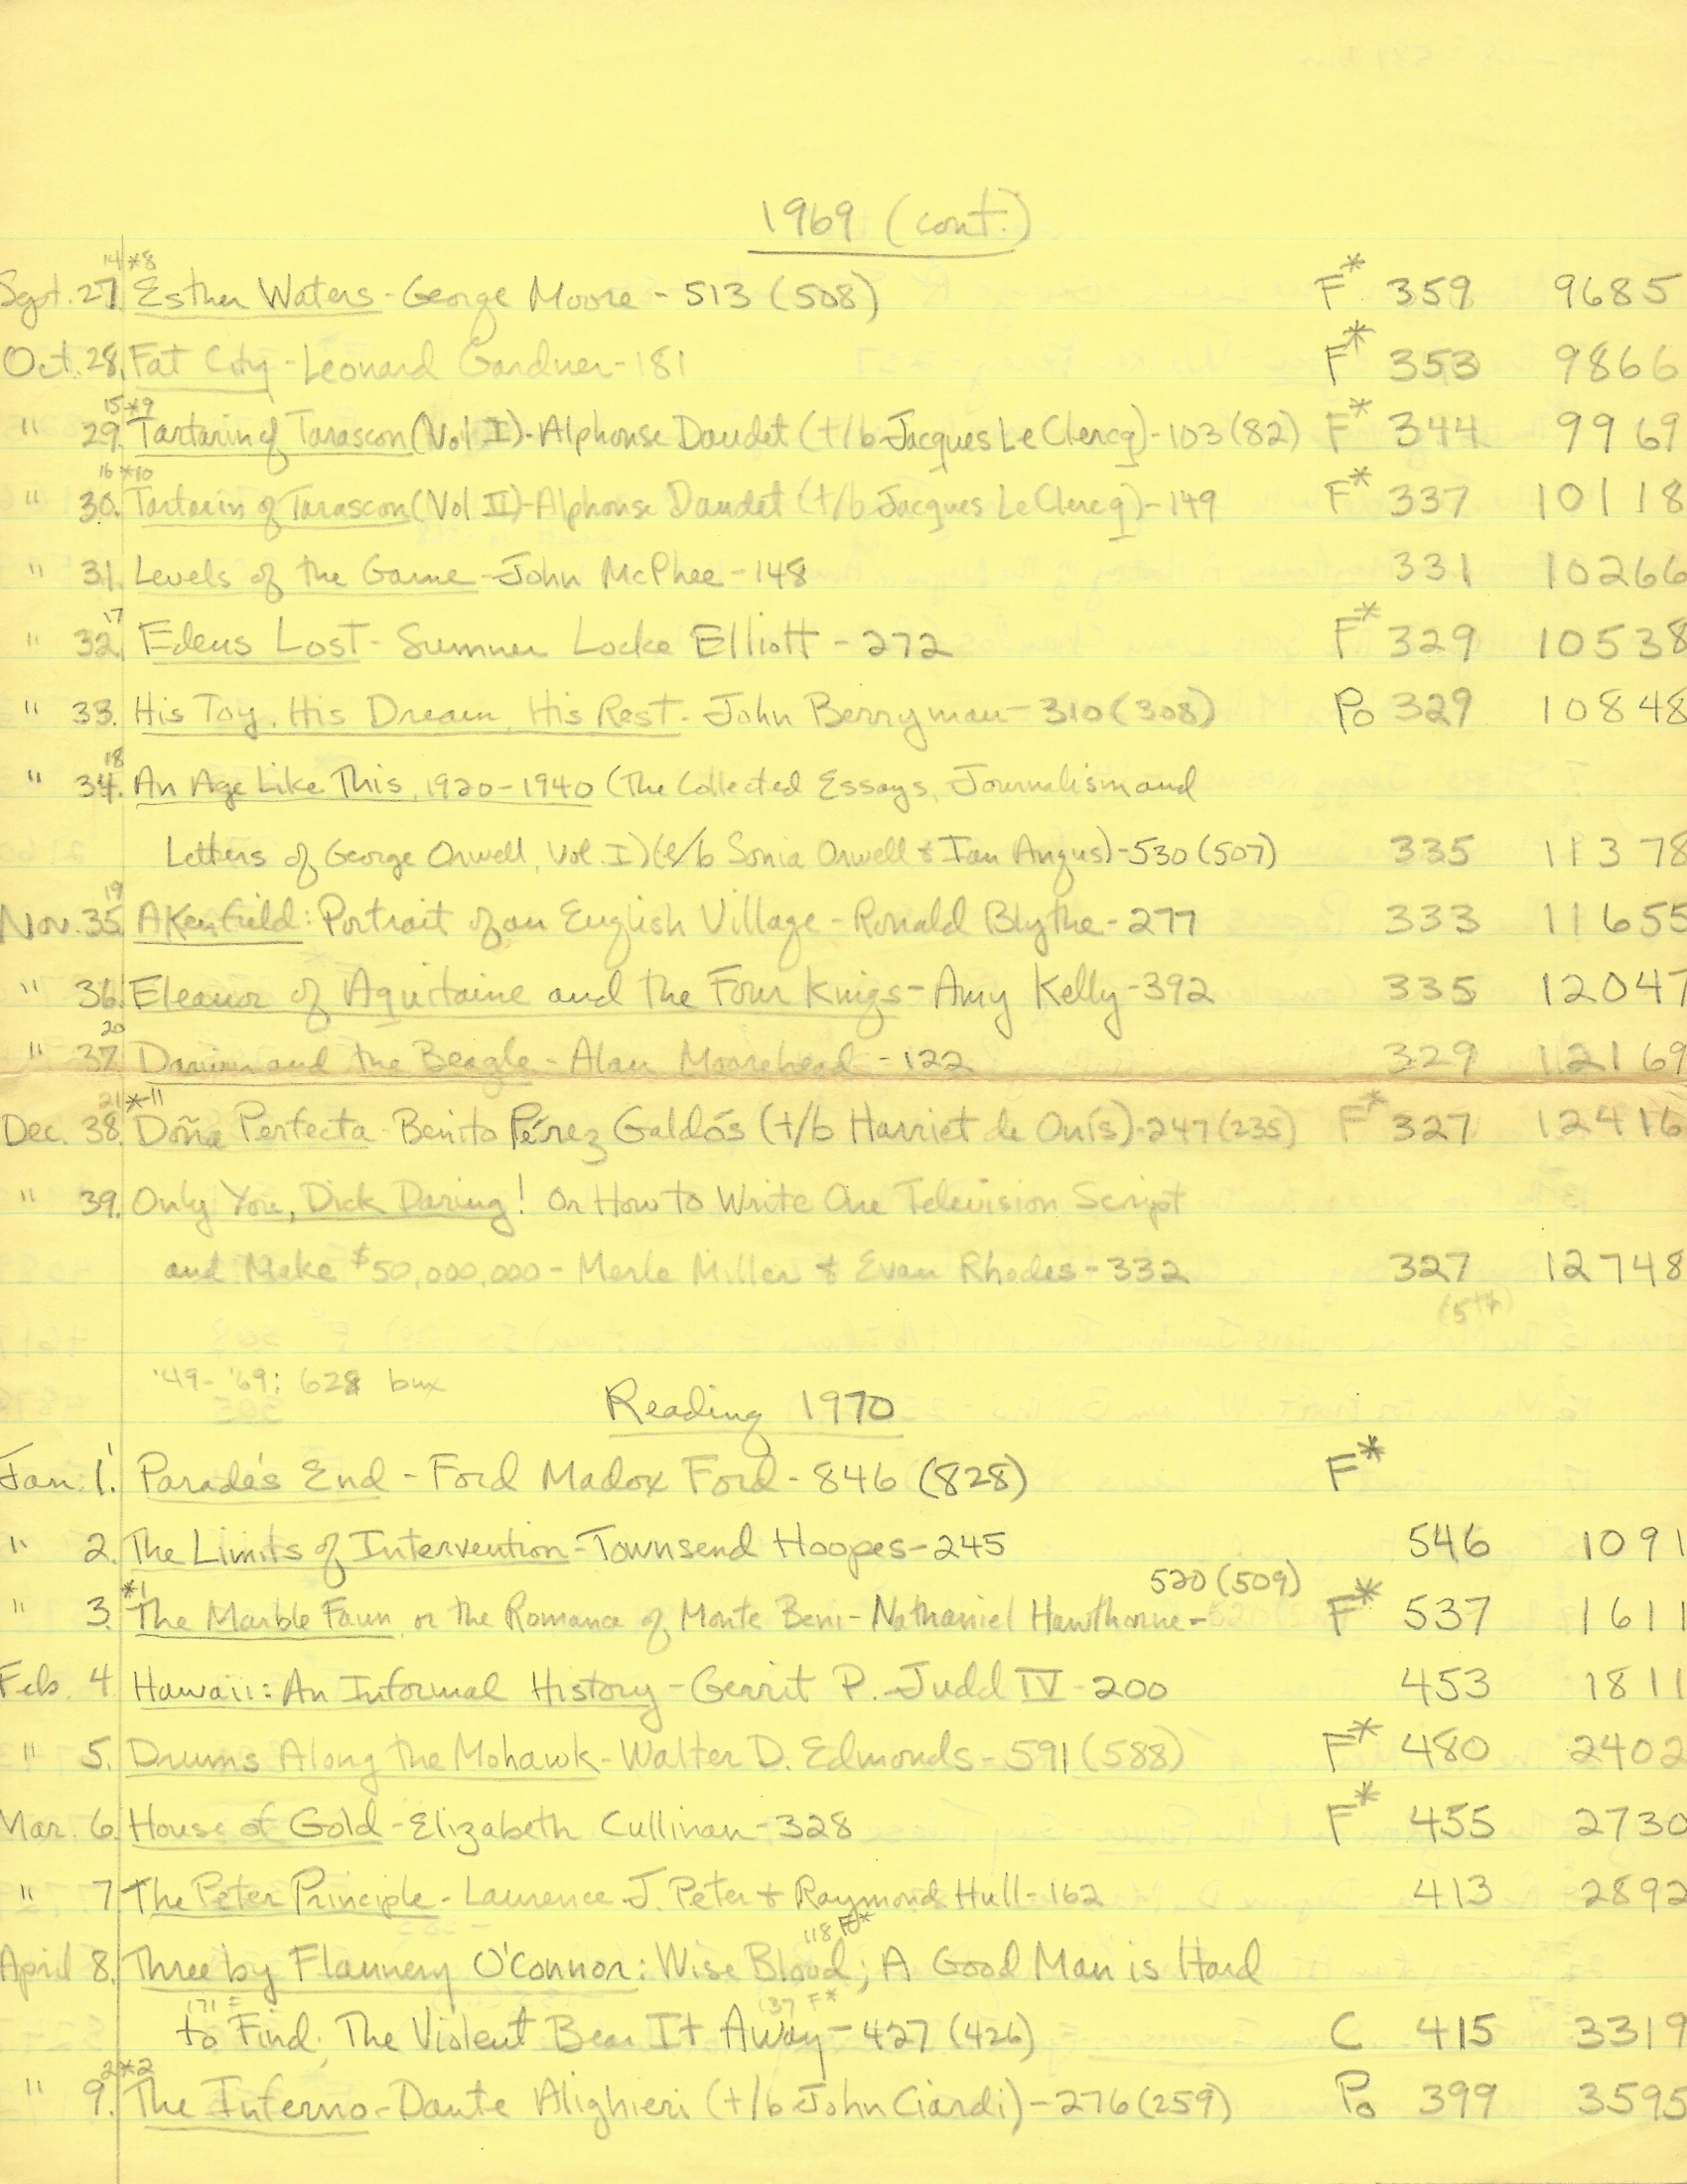 1969 (cont.)
14 *8
Sept. 27. Esther Waters - George Moore - 513 (508) F* 359 9685
Oct. 28. Fat City - Leonard Gardner - 181 F* 353 9866
15 *9
" 29. Tartarin of Tarascon (Vol I) - Alphonse Daudet (t/b Jacques Le Clercq) - 103 (82) F* 344 9969
16 *10
" 30. Tartarin of Tarascon (Vol II) - Alphonse Daudet (t/b Jacques Le Clercq) - 149 F* 337 10118
" 31. Levels of the Game - John McPhee - 148 331 10266
17
" 32. Edens Lost - Sumner Locke Elliott - 272 F* 329 10538
" 33. His Toy, His Dream, His Rest - John Berryman - 310 (308) Po 329 10848
18
" 34. An Age Like This, 1920-1940 (The Collected Essays, Journalism and
Letters of George Orwell, Vol. I) (e/b Sonia Orwell & Ian Angus) - 530 (507) 335 11378
19
Nov. 35. Akenfield: Portrait of an English Village - Ronald Blythe - 277 333 11655
" 36. Eleanor of Aquitaine and the Four Kings - Amy Kelly - 392 335 12047
20
" 37. Darwin and the Beagle - Alan Moorehead - 122 329 12169
21 *11
Dec. 38. Doña Perfecta - Benito Pérez Galdós (t/b Harriet de Onís) - 247 (235) F* 327 12416
" 39. Only You, Dick Daring! Or How to Write One Television Script
and Make $50,000,000 - Merle Miller & Evan Rhodes - 332 327 12748
(5th)
'49-'69: 628 bux
Reading 1970
Jan. 1. 1 Parade's End - Ford Madox Ford - 846 (828) F*
" 2. The Limits of Intervention - Townsend Hoopes - 245 546 1091
*1 520 (509)
" 3. The Marble Faun, or the Romance of Monte Beni - Nathaniel Hawthorne - F* 537 1611
Feb. 4. Hawaii: An Informal History - Gerrit P. Judd IV - 200 453 1811
" 5. Drums Along the Mohawk - Walter D. Edmonds - 591 (588) F* 480 2402
Mar. 6. House of Gold - Elizabeth Cullinan - 328 F* 455 2730
" 7 The Peter Principle - Laurence J. Peter + Raymond Hull - 162 413 2892
118 F*
April 8. Three by Flannery O'Connor: Wise Blood; A Good Man is Hard
171 F 137 F*
to Find; The Violent Bear It Away - 427 (426) C 415 3319
2 *2
" 9. The Inferno - Dante Alighieri (t/b John Ciardi) - 276 (259) Po 399 3595